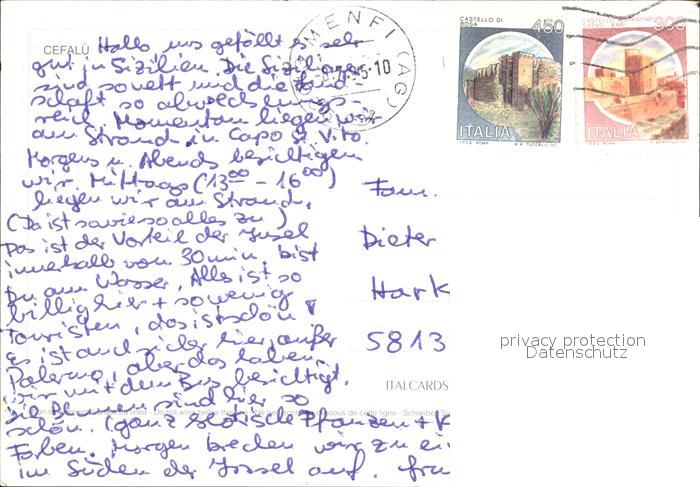 CEFALÙ Hallo uns gefällt es sehr
gut in Sizilien. Die Sizilianer
sind so nett und die Land-
schaft so abwechlungs-
reich. Momentan liegen wir
am Strand in Capo St. Vito.
Morgens u. Abends besichtigen
wir. Mittags (13⁰⁰ - 16⁰⁰)
liegen wir am Strand.
(Da ist sowieso alles zu)
Das ist der Vorteil der Insel
innerhalb von 30 min. bist
Du am Wasser. Alles ist so
billig hier + so wenig
Touristen, das ist schön
Es ist auch sicher hier, außer
Palermo, aber das haben
wir mit dem Bus besichtigt.
Die Blumen sind hier so
schön. (ganz exotische Pflanzen +
Farben. Morgen brechen wir zu ei
im Süden der Insel auf.
MENFI (AG)
95-10
CASTELLO DI
BOSA
450
ITALIA
I.P.Z.S. ROMA
M.M. TUCCELLI INC.
300
ITALIA
I.P.Z.S. ROMA
Fam.
Dieter
Hark
5813
privacy protection
Datenschutz
ITALCARDS
Do not write below the
dessous de cette ligne - Schreiben